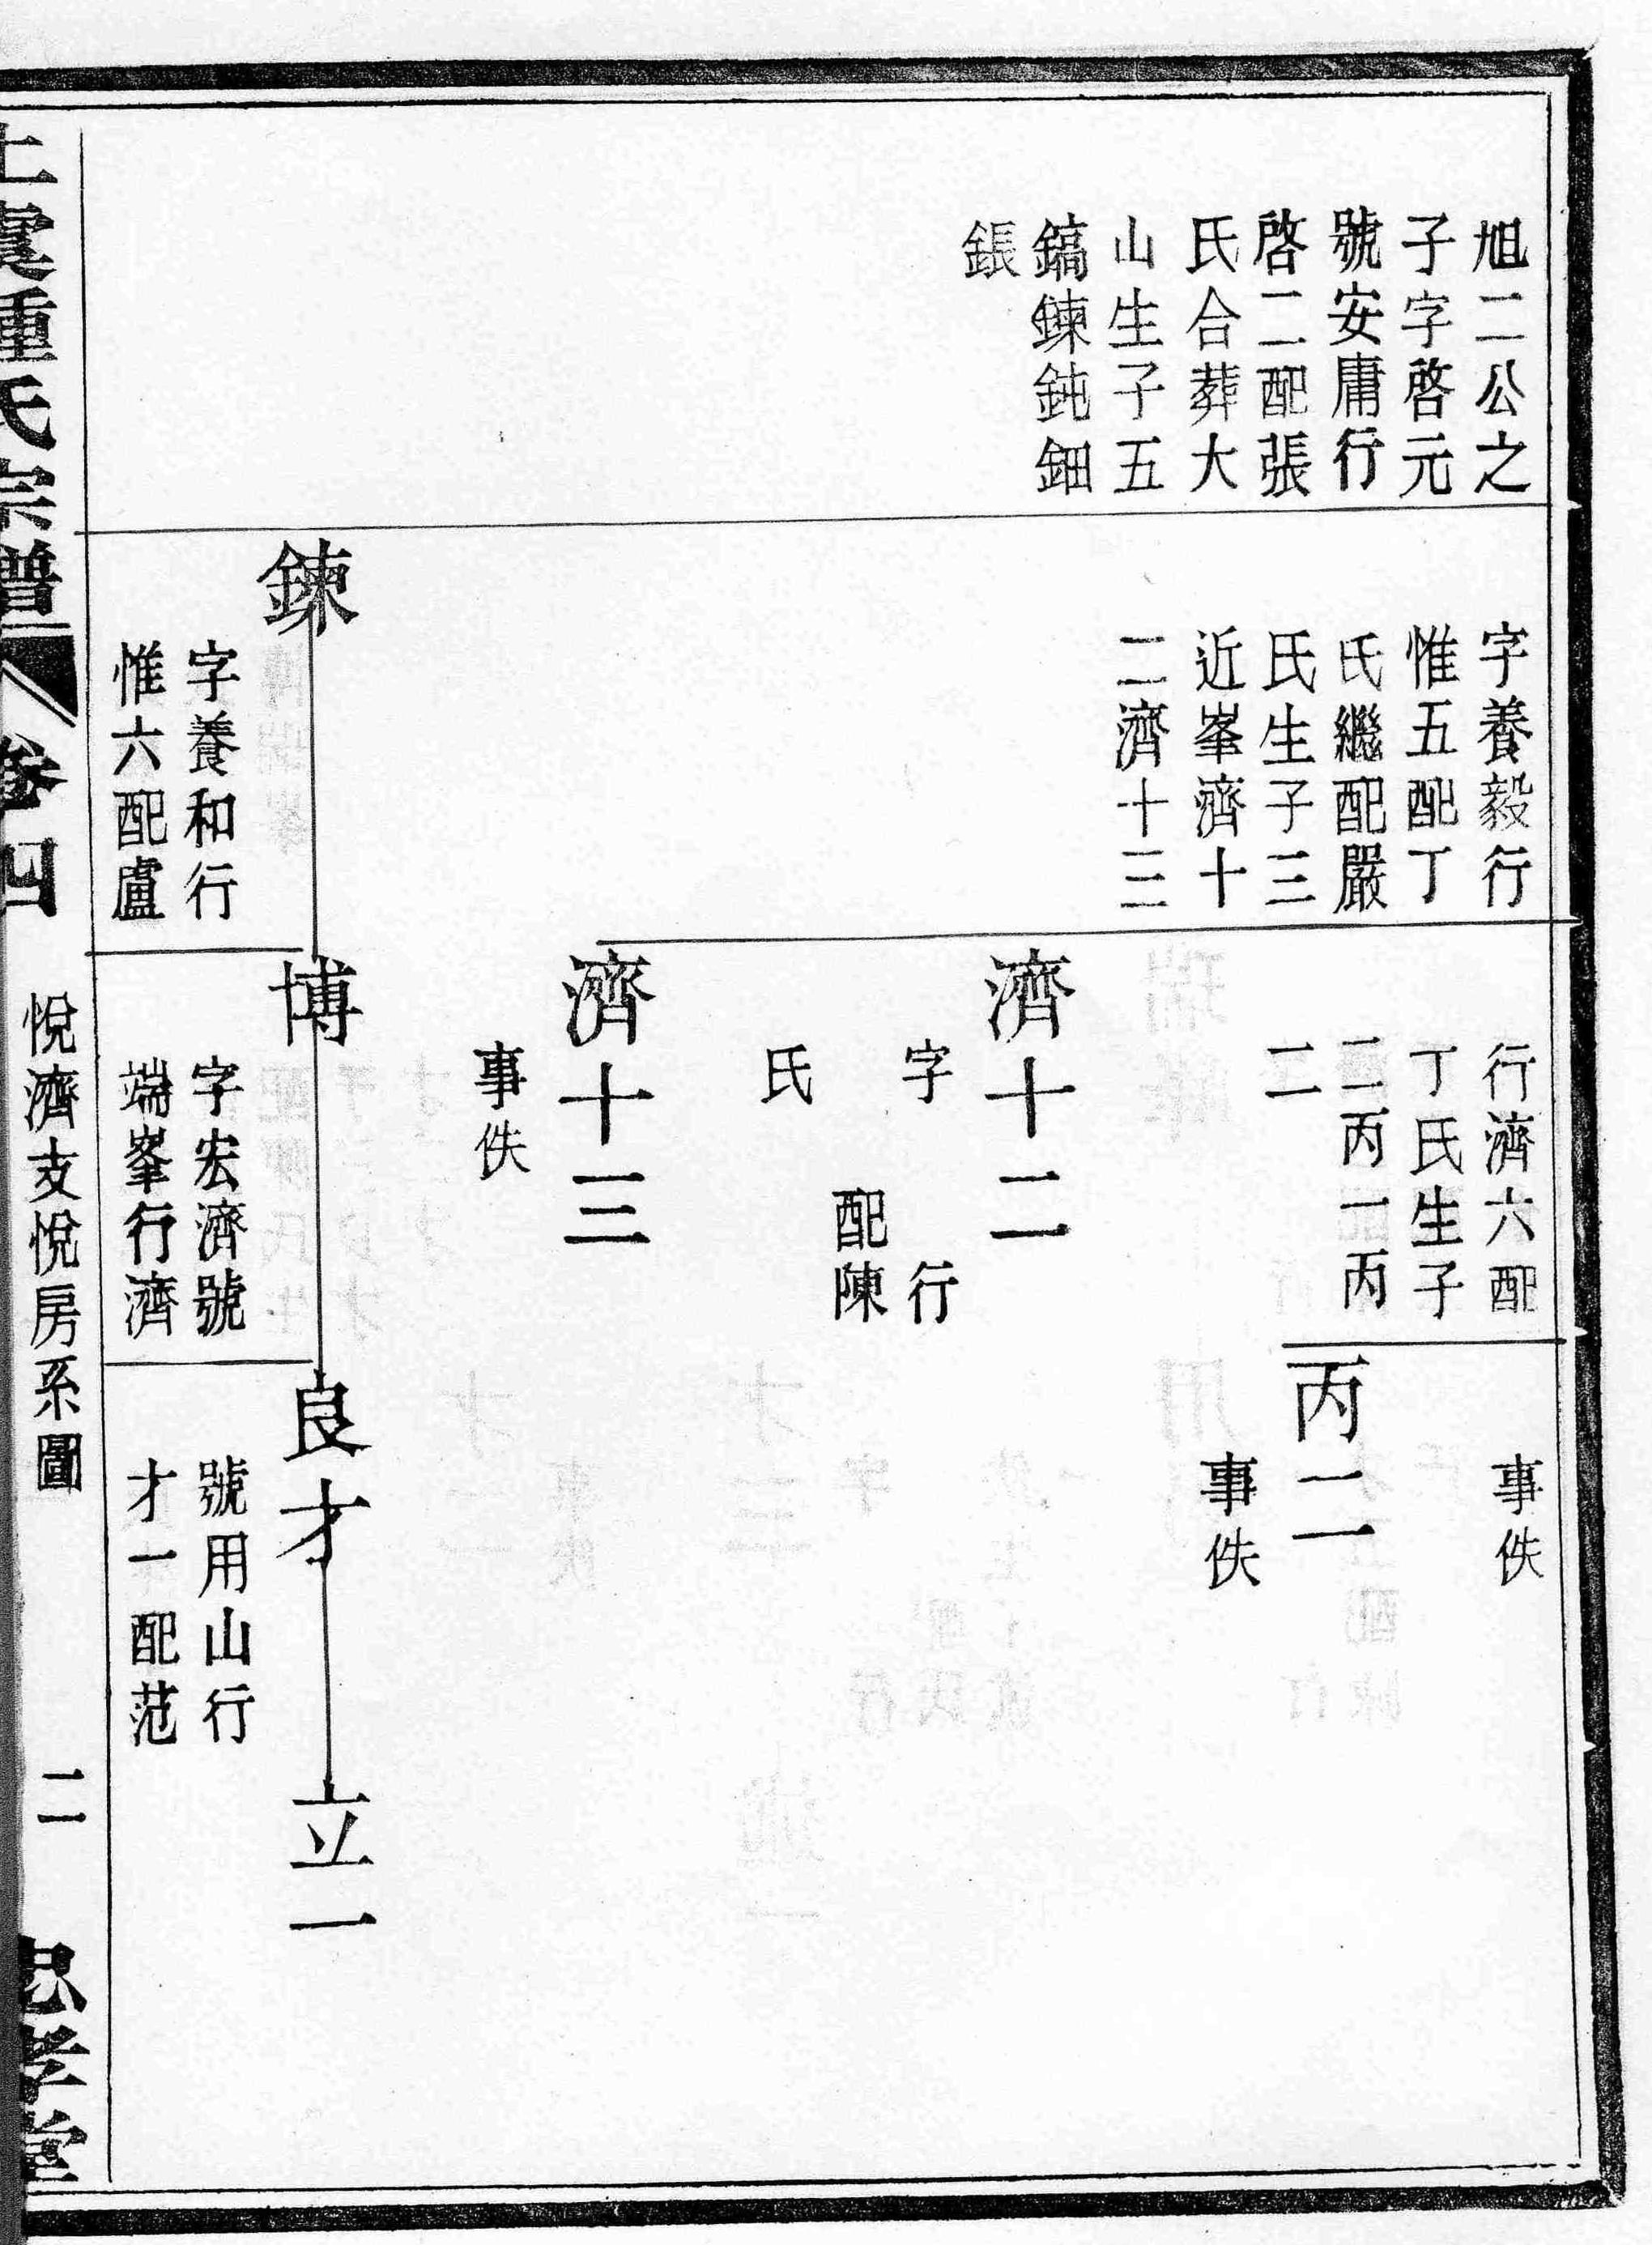 旭二公之
子字啓元
號安庸行
啓二配張
氏合葬大
山生子五
鎬鍊鈍鈿
鋹
字養毅行
惟五配丁
氏繼配嚴
氏生子三
近峯濟十
二濟十三
鍊
字養和行
惟六配盧
行濟六配
丁氏生子
二丙一丙
二
濟十二
字 行
配陳
氏
濟十三
事佚
博
字宏濟號
端峯行濟
事佚
丙二
事佚
良才
號用山行
才一配范
立一
上虞種氏宗譜
卷四
悅濟支悅房系圖
二
忠孝堂